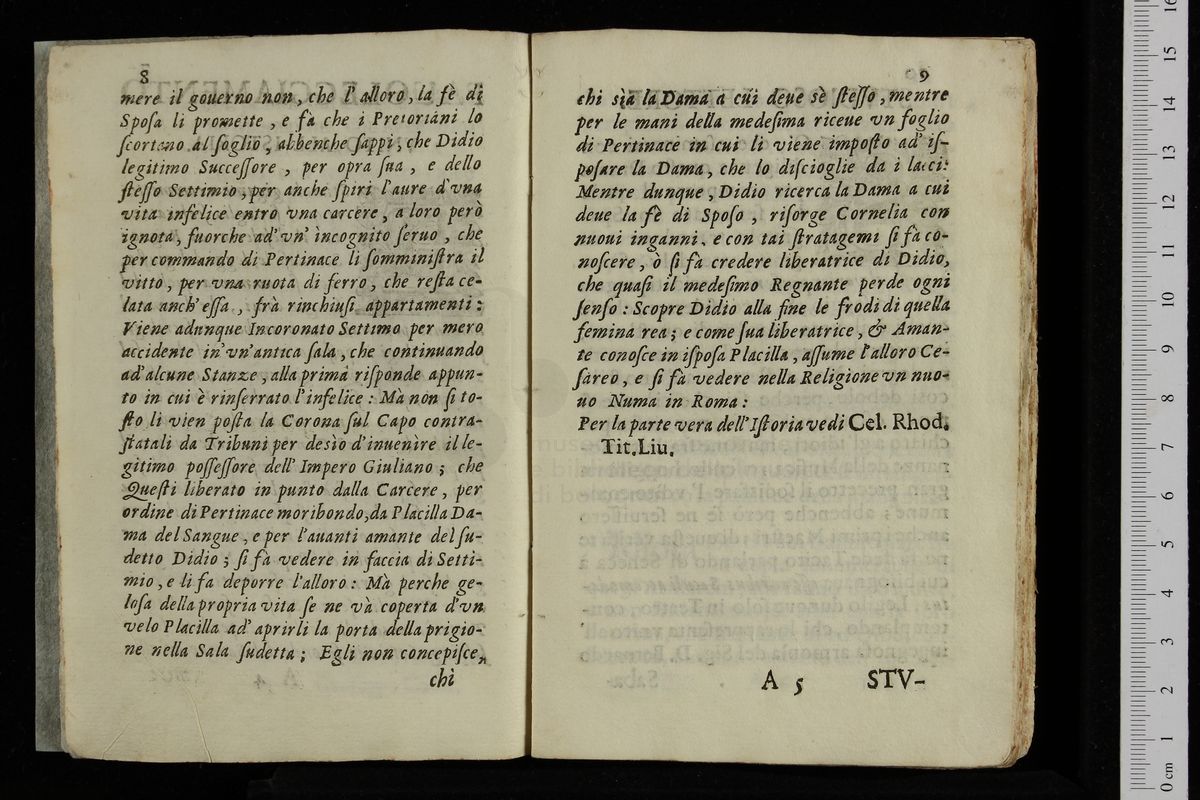 8
mere il gouerno non, che l'alloro, la fè di
Sposa li promette, e fà che i Pretoriani lo
ſcortano al ſoglio, abbenche ſappi, che Didio
legitimo Succeſſore, per opra ſua, e dello
ſteſſo Settimio, per anche ſpiri l'aure d'vna
vita infelice entro vna carcère, a loro però
ignota, fuorche ad'vn' incognito ſeruo, che
per commando di Pertinace li ſomminiſtra il
vitto, per vna ruota di ferro, che reſta ce-
lata anch'eſſa, frà rinchiuſi appartamenti:
Viene adunque Incoronato Settimo per mero
accidente in'vn'antica ſala, che continuando
ad'alcune Stanze, alla primà riſponde appun-
to in cui è rinſerrato l'infelice: Mà non ſi to-
ſto li vien poſta la Corona ſul Capo contra-
ſtatali da Tribuni per desìo d'inuenìre il le-
gitimo poſſeſſore dell'Impero Giuliano; che
Queſti liberato in punto dalla Carcere, per
ordine di Pertinace moribondo, da Placilla Da-
ma del Sangue, e per l'auanti amante del ſu-
detto Didio; ſi fà vedere in faccia di Setti-
mio, e li fa deporre l'alloro: Mà perche ge-
loſa della propria vita ſe ne và coperta d'vn
velo Placilla ad'aprirli la porta della prigio-
ne nella Sala ſudetta; Egli non concepiſce,
chì
9
chi sìa la Dama a cui deue sè ſteſſo, mentre
per le mani della medeſima riceue vn foglio
di Pertinace in cui li viene impoſto ad'iſ-
poſare la Dama, che lo diſcioglie da i lacci:
Mentre dunque, Didio ricerca la Dama a cui
deue la fè di Spoſo, riſorge Cornelia con
nuoui inganni, e con tai ſtratagemi ſi fà co-
noſcere, ò ſi fà credere liberatrice di Didio,
che quaſi il medeſimo Regnante perde ogni
ſenſo: Scopre Didio alla fine le frodi di quella
femina rea; e come ſua liberatrice, & Aman-
te conoſce in iſpoſa Placilla, aſſume l'alloro Ce-
ſareo, e ſi fà vedere nella Religione vn nuo-
uo Numa in Roma:
Per la parte vera dell'Iſtoria vedi Cel. Rhod.
Tit. Liu.
A 5 STV-
16
15
14
13
12
11
10
9
8
7
6
5
4
3
2
1
0 cm